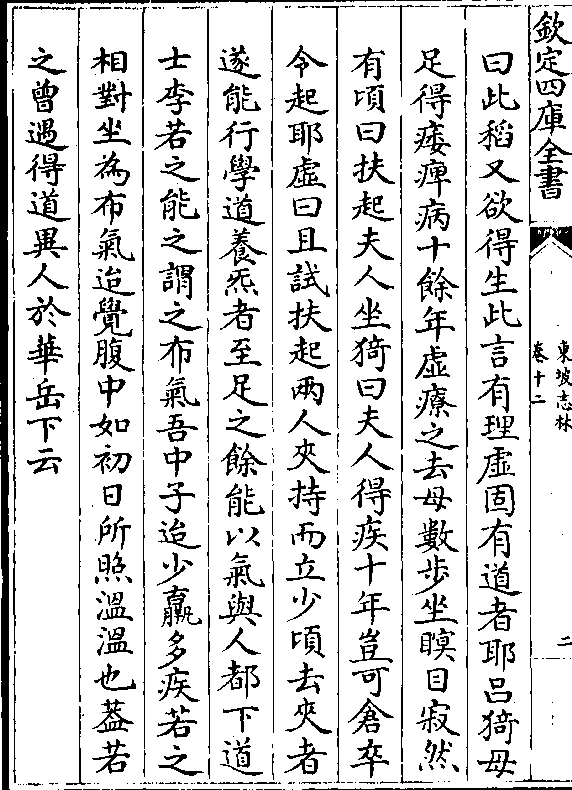 欽定四庫全書
東坡志林
卷十二
二
曰此稻又欲得生此言有理虛固有道者耶吕猗母
足得痿痺病十餘年虛療之去母數步坐瞑目寂然
有頃曰扶起夫人坐猗曰夫人得疾十年豈可倉卒
令起耶虛曰且試扶起兩人夾持而立少頃去夾者
遂能行學道養炁者至足之餘能以氣與人都下道
士李若之能之謂之布氣吾中子迨少羸多疾若之
相對坐為布氣迨覺腹中如初日所照溫溫也葢若
之曾遇得道異人於華岳下云